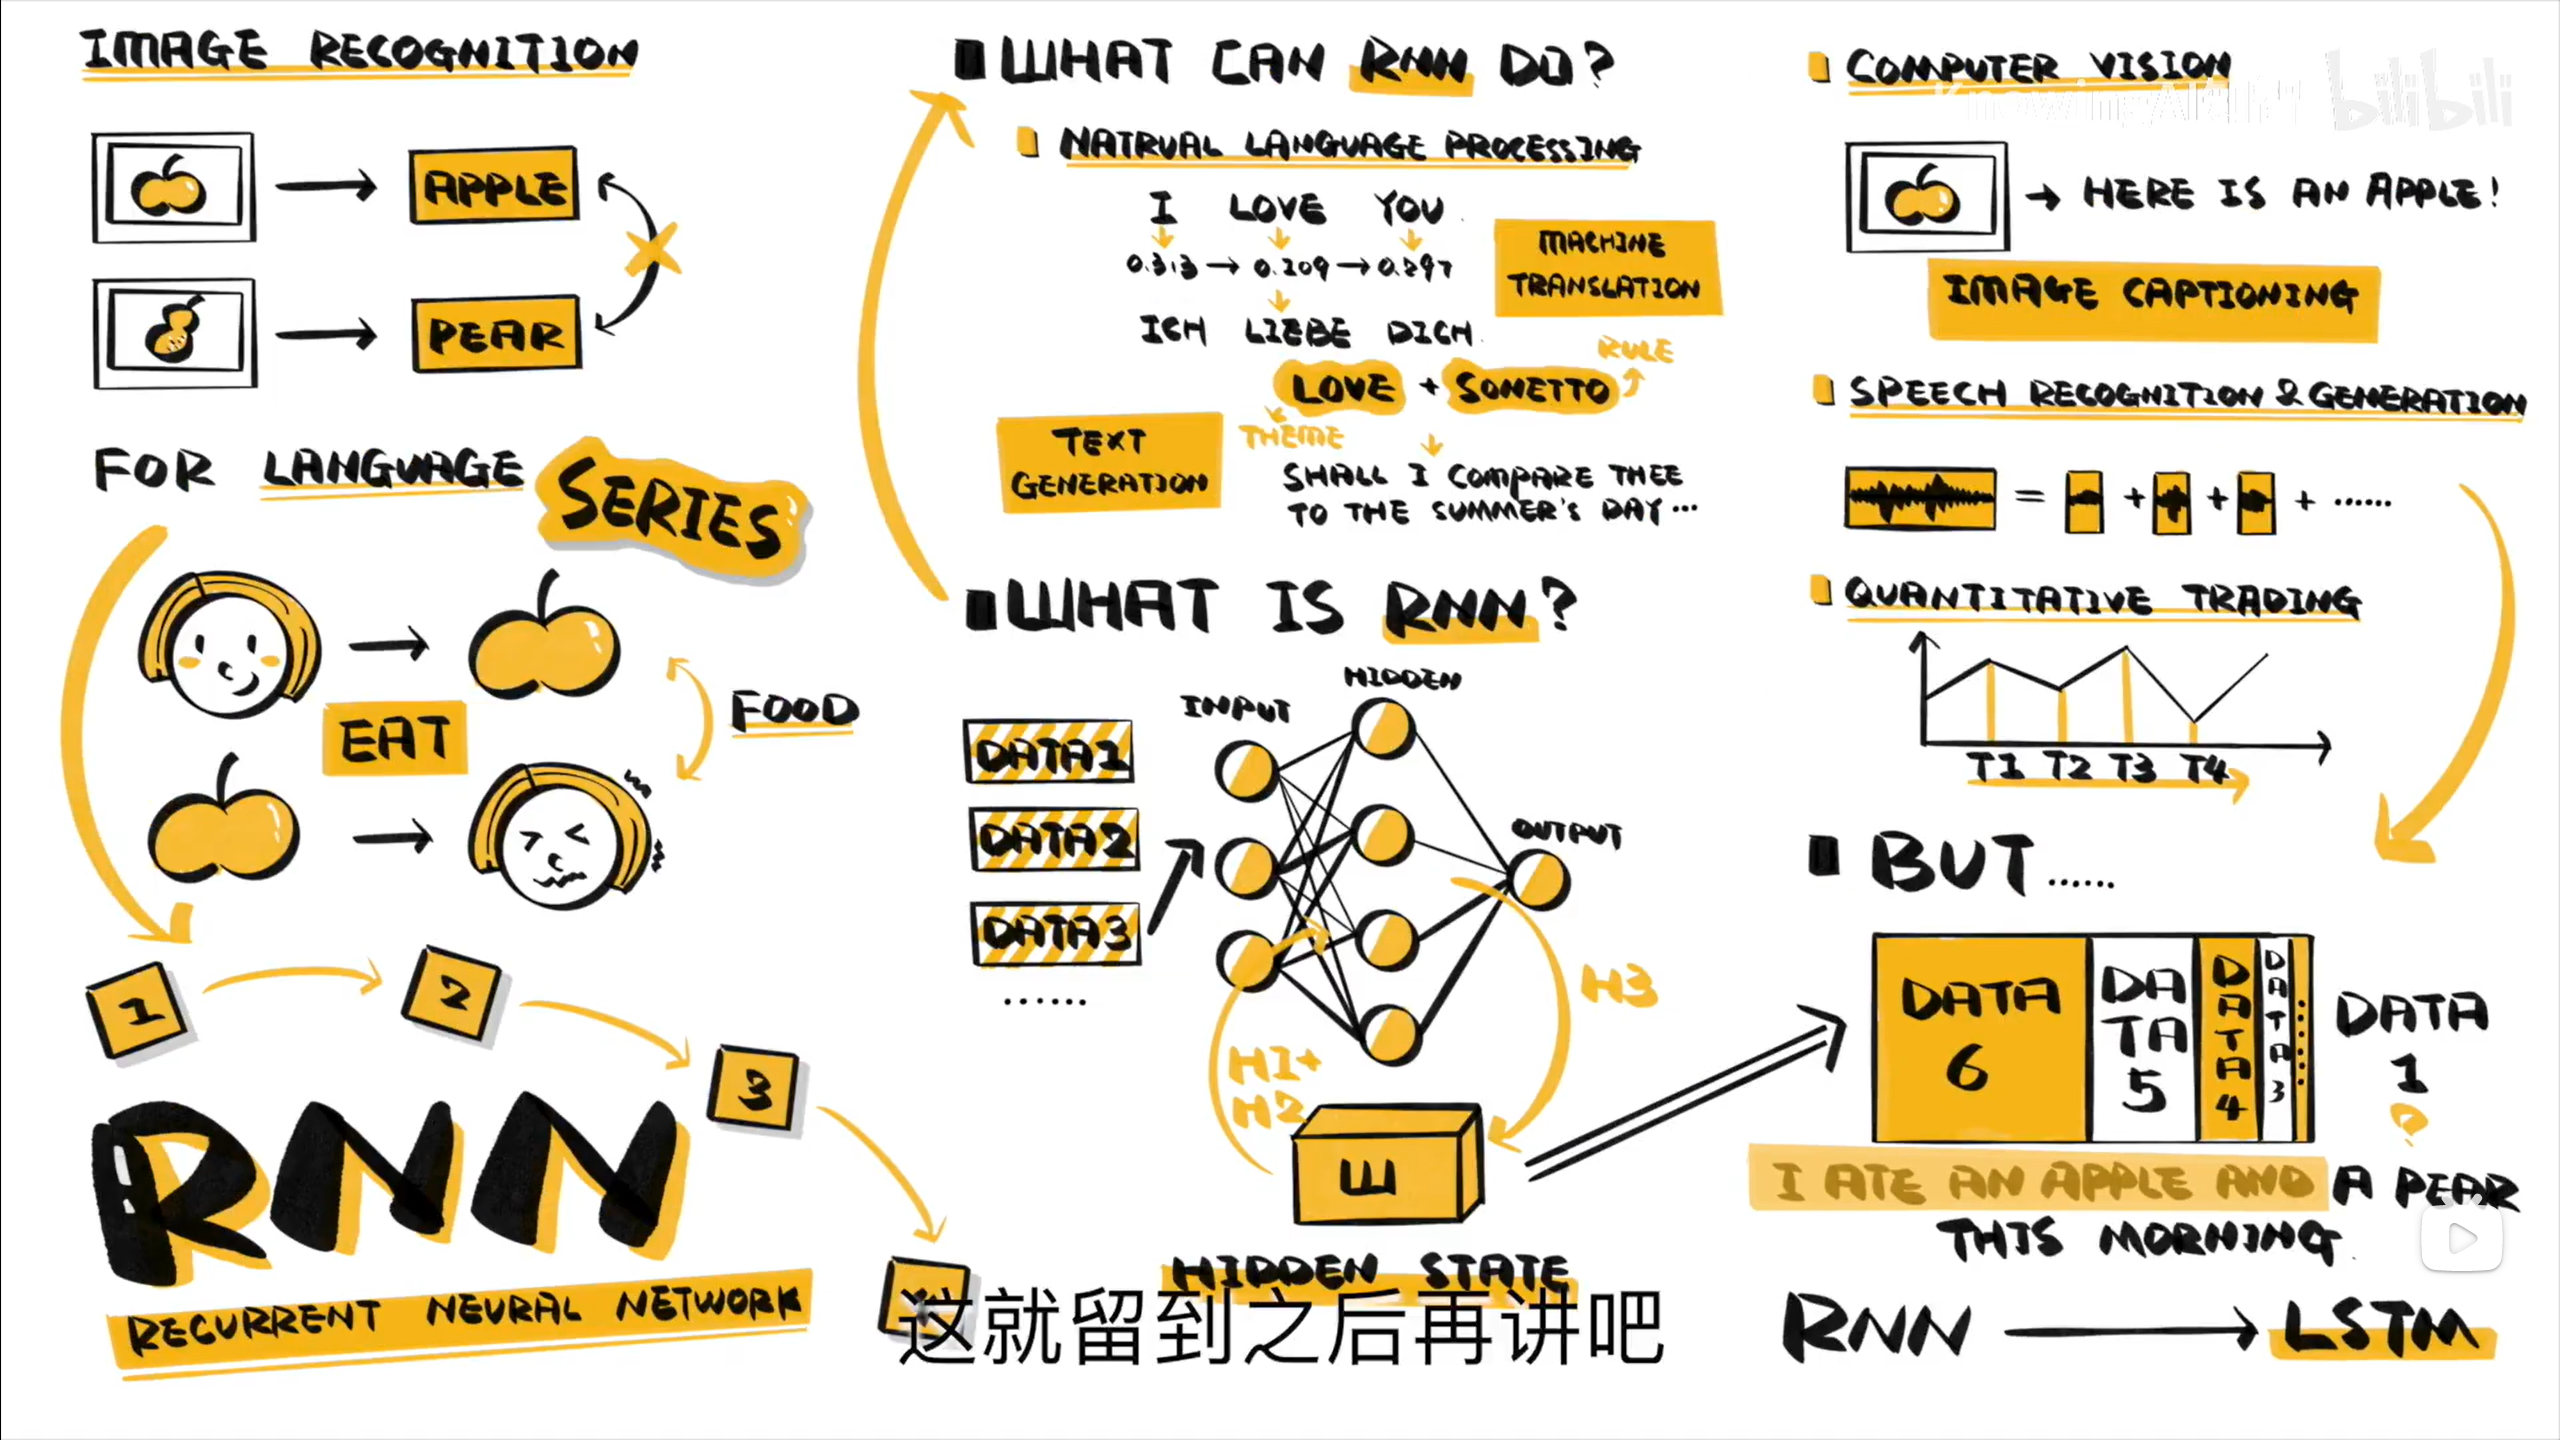 IMAGE RECOGNITION
APPLE
PEAR
FOR LANGUAGE SERIES
EAT
FOOD
1
2
3
RNN
RECURRENT NEURAL NETWORK
WHAT CAN RNN DO?
NATRUAL LANGUAGE PROCESSING
I LOVE YOU
0.313 → 0.209 → 0.897
ICH LIEBE DICH
MACHINE
TRANSLATION
RULE
LOVE + SONETTO
THEME
TEXT
GENERATION
SHALL I COMPARE THEE
TO THE SUMMER'S DAY ...
WHAT IS RNN?
INPUT
HIDDEN
OUTPUT
DATA1
DATA2
DATA3
......
H3
H1+
H2
W
HIDDEN STATE
COMPUTER VISION
bilibili
→ HERE IS AN APPLE!
IMAGE CAPTIONING
SPEECH RECOGNITION & GENERATION
= + + + ......
QUANTITATIVE TRADING
T1 T2 T3 T4
BUT......
DATA 6
DATA 5
DATA 4
DATA 3
......
DATA 1
?
I ATE AN APPLE AND A PEAR
THIS MORNING.
RNN → LSTM
这就留到之后再讲吧